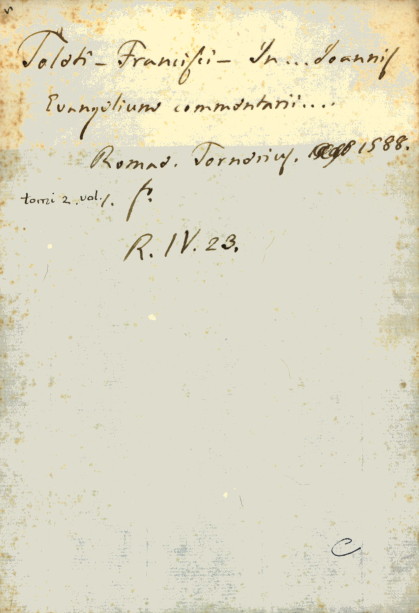 Toleti - Francisci - In... Joannis
Evangelium commentarii....
Romae. Tornerius. 1588.
tomi 2. vol. 1. f.º
R. IV. 23.
C